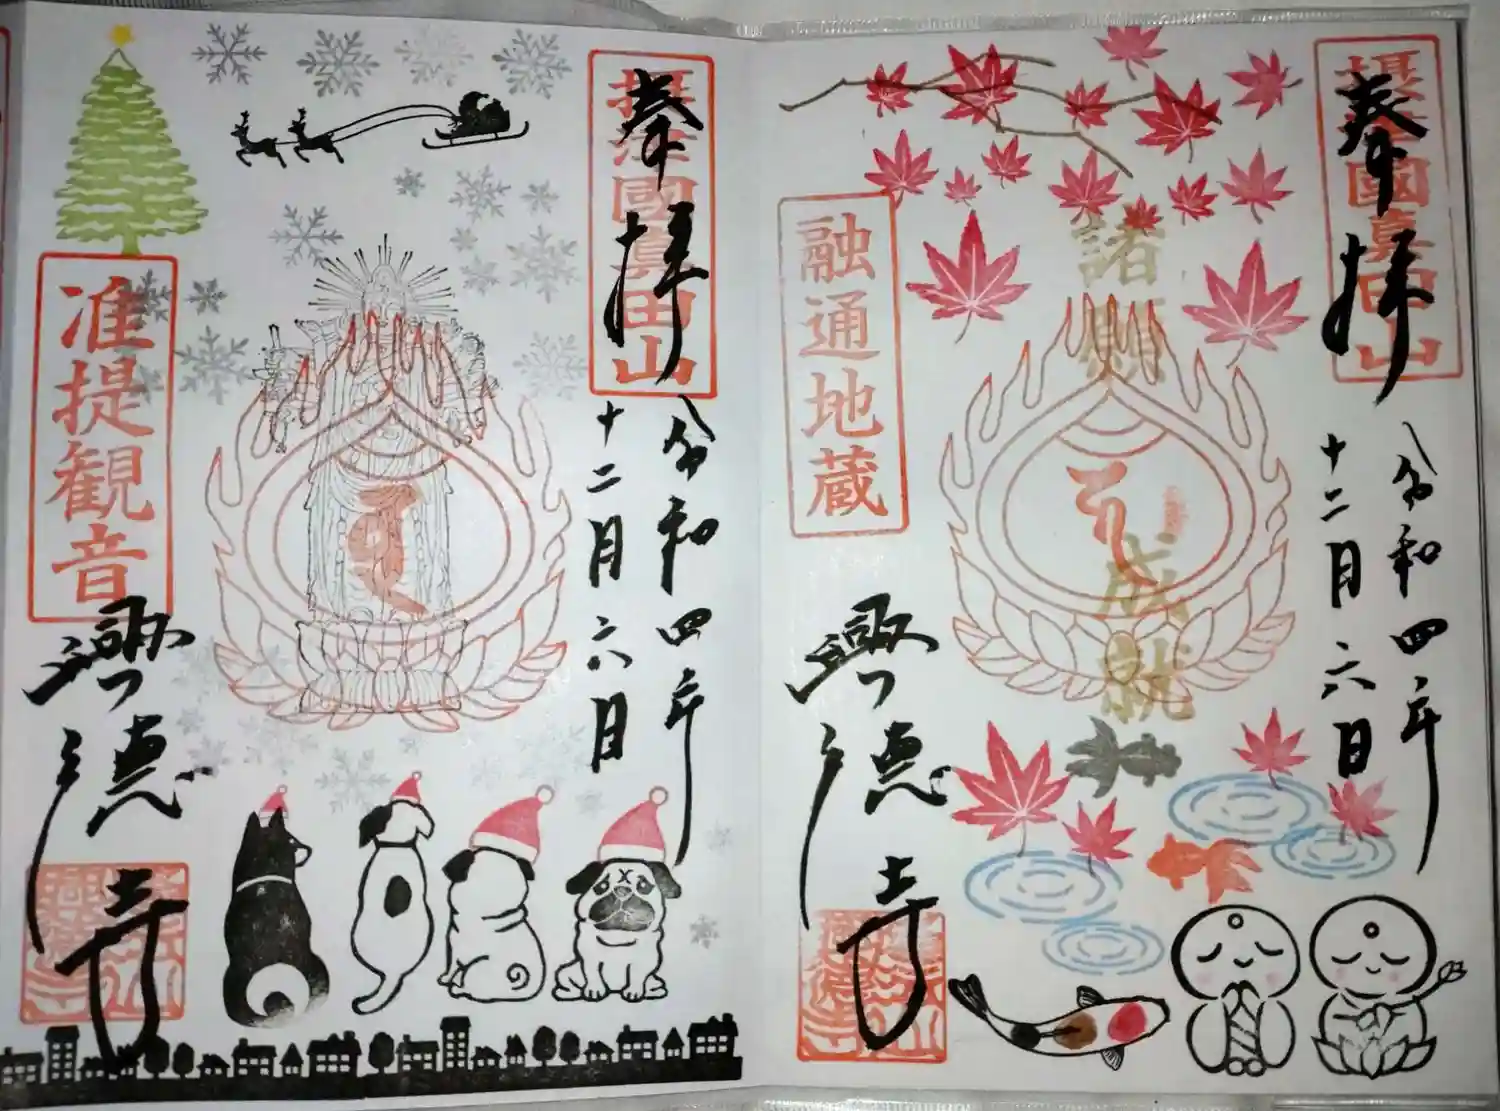 奉拝
摂津國真田山
令和四年
十二月六日
准提観音
興徳寺
奉拝
摂津國真田山
令和四年
十二月六日
諸願
成就
融通地蔵
興徳寺